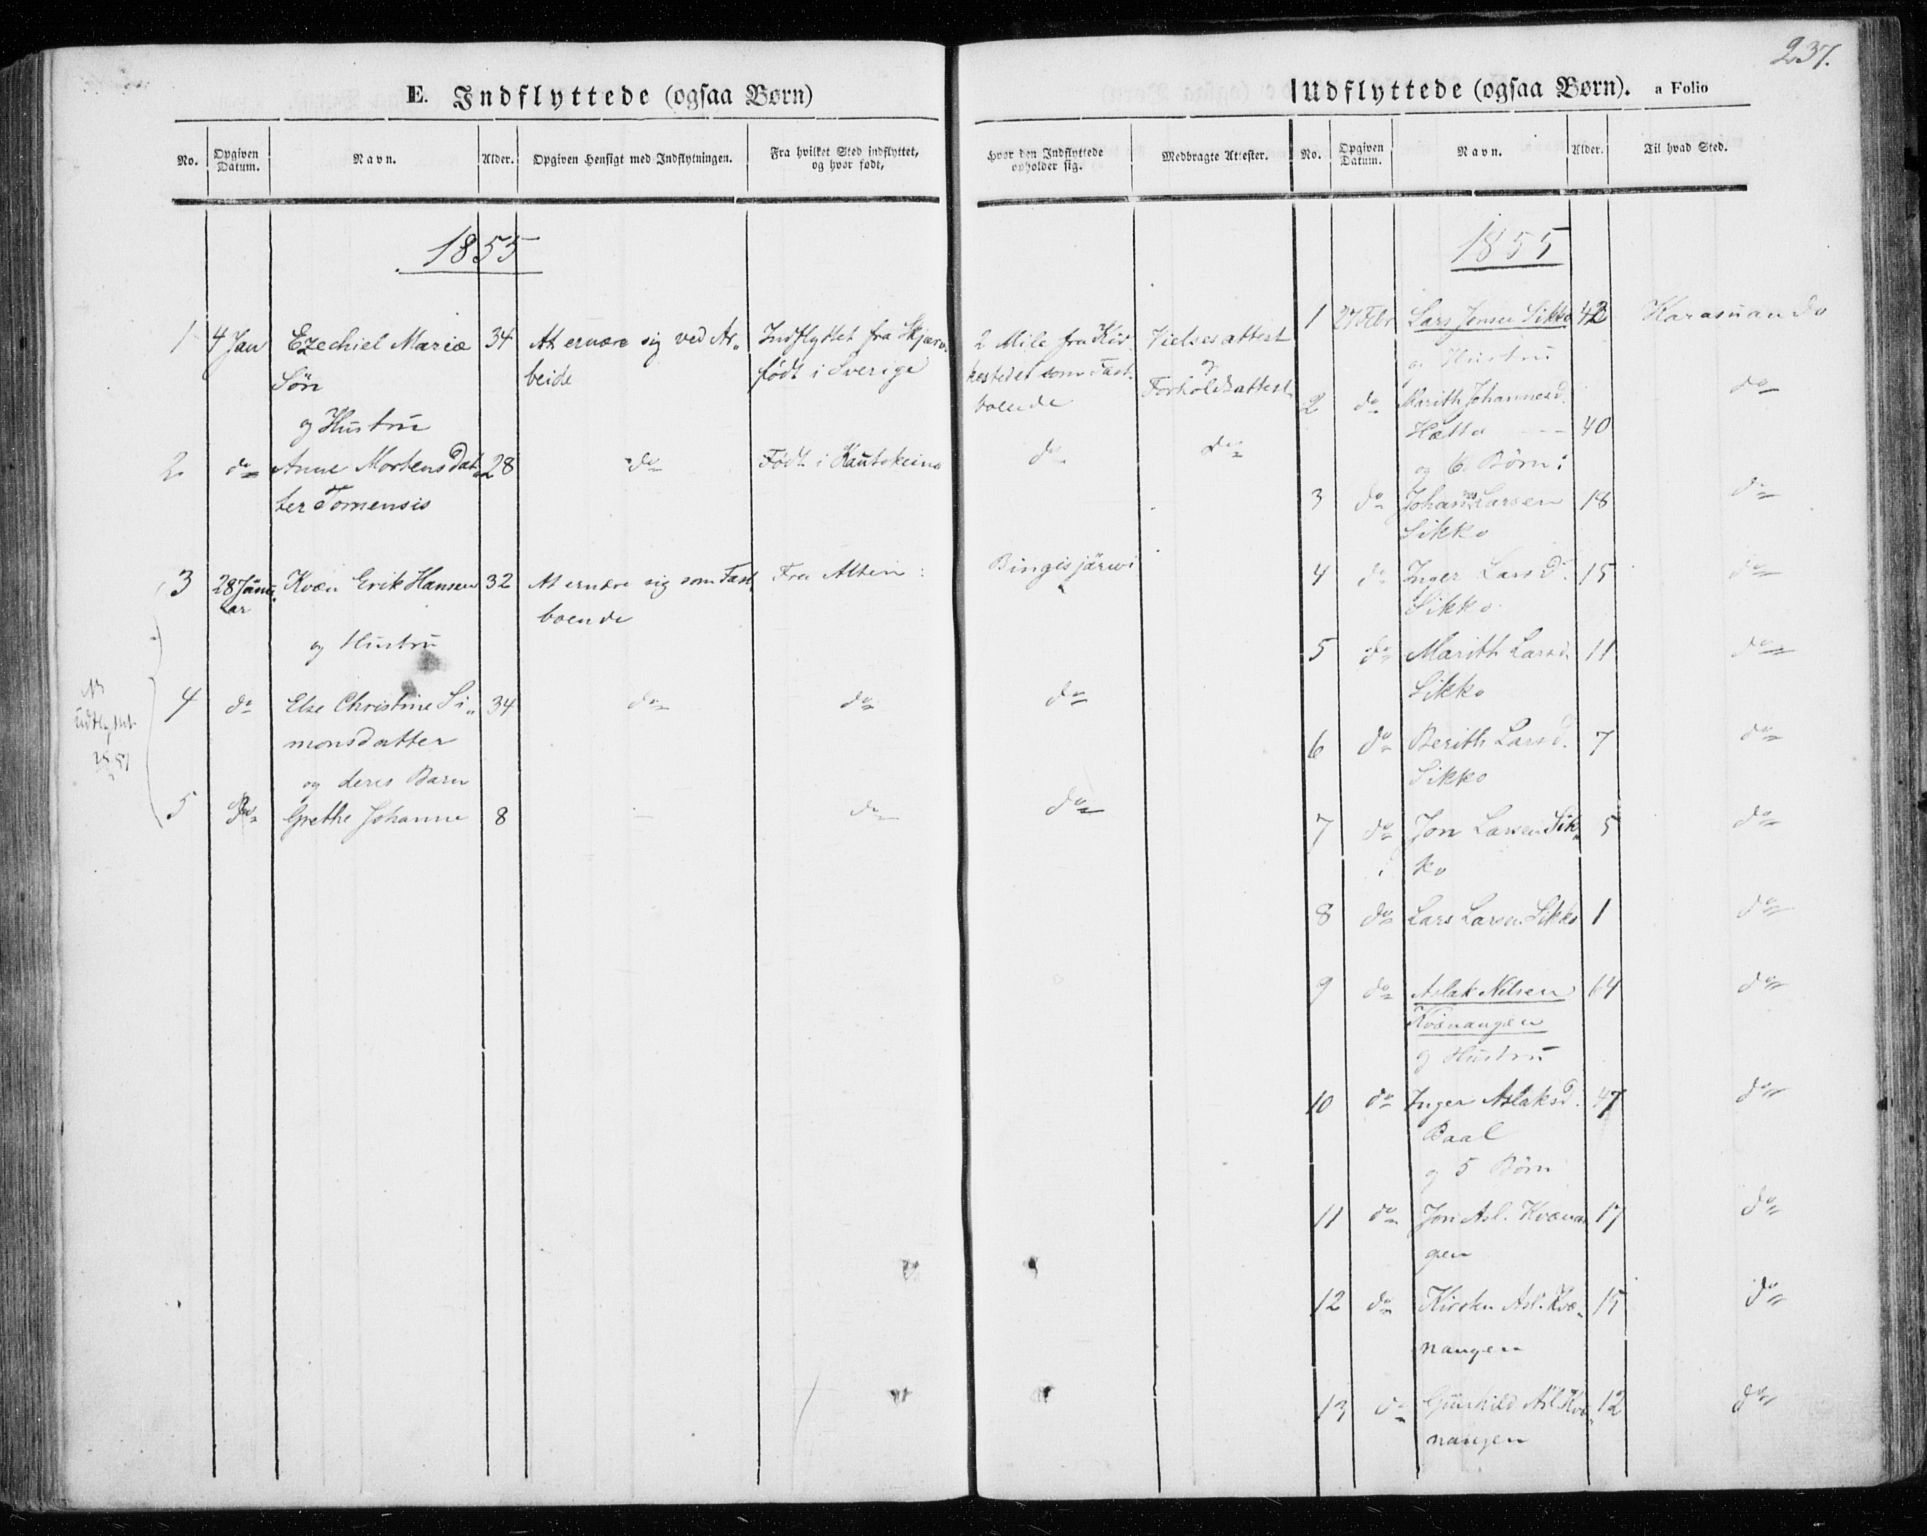 237.
E. Indflyttede (ogsaa Børn)
No.
Opgiven Datum.
Navn.
Alder.
Opgiven Hensigt med Indflytningen.
Fra hvilket Sted indflyttet, og hvor født,
1855
1 4 Jan Ezechiel Mariæ 34 At ernære sig ved Ar- Indflyttet fra Skjærv.
Søn beide født i Sverige
og Hustru
2 do Anne Mortens Dat- 28 do Født i Kautokeino
ter Tomensis
3 28 Janu- Kvæn Erik Hansen 32 At ernære sig som Fast Fra Alten
ar boende
og Hustru
4 do Else Christine Si- 34 do do
monsdatter
og deres Barn
5 do Grethe Johanne 8 do
udflyttet
Hvor den Indflyttede opholder sig.
Medbragte Attester.
2 Mile fra Kir- Vielsesattest
kestedet som Fast- og
boende Forholdsattest
do do
Bingisjärwi
do
do
Udflyttede (ogsaa Børn). a Folio
No.
Opgiven Datum.
Navn.
Alder.
Til hvad Sted.
1855
1 27 Febr Lars Jonsen Sikko 42 Karasuando
og Hustru
2 do Marith Johannesd. do
Hætta 40
og 6 Børn:
3 do Johannes Larsen 18 do
Sikko
4 do Inger Larsd. 15 do
Sikko
5 do Marith Larsd. 11 do
Sikko
6 do Berith Larsd. 7 do
Sikko
7 do Jon Larsen Sik- 5 do
ko
8 do Lars Larsen Sikko 1 do
9 do Aslak Nilsen 64 do
Kvænangen
og Hustru
10 do Inger Aslaksd. 47 do
Baal
og 5 Børn
11 do Jon Asl. Kvænan 17 do
gen
12 do Kirsten Asl. Kvæ- 15 do
nangen
13 do Gunhild Asl. Kvæ- 12 do
nangen